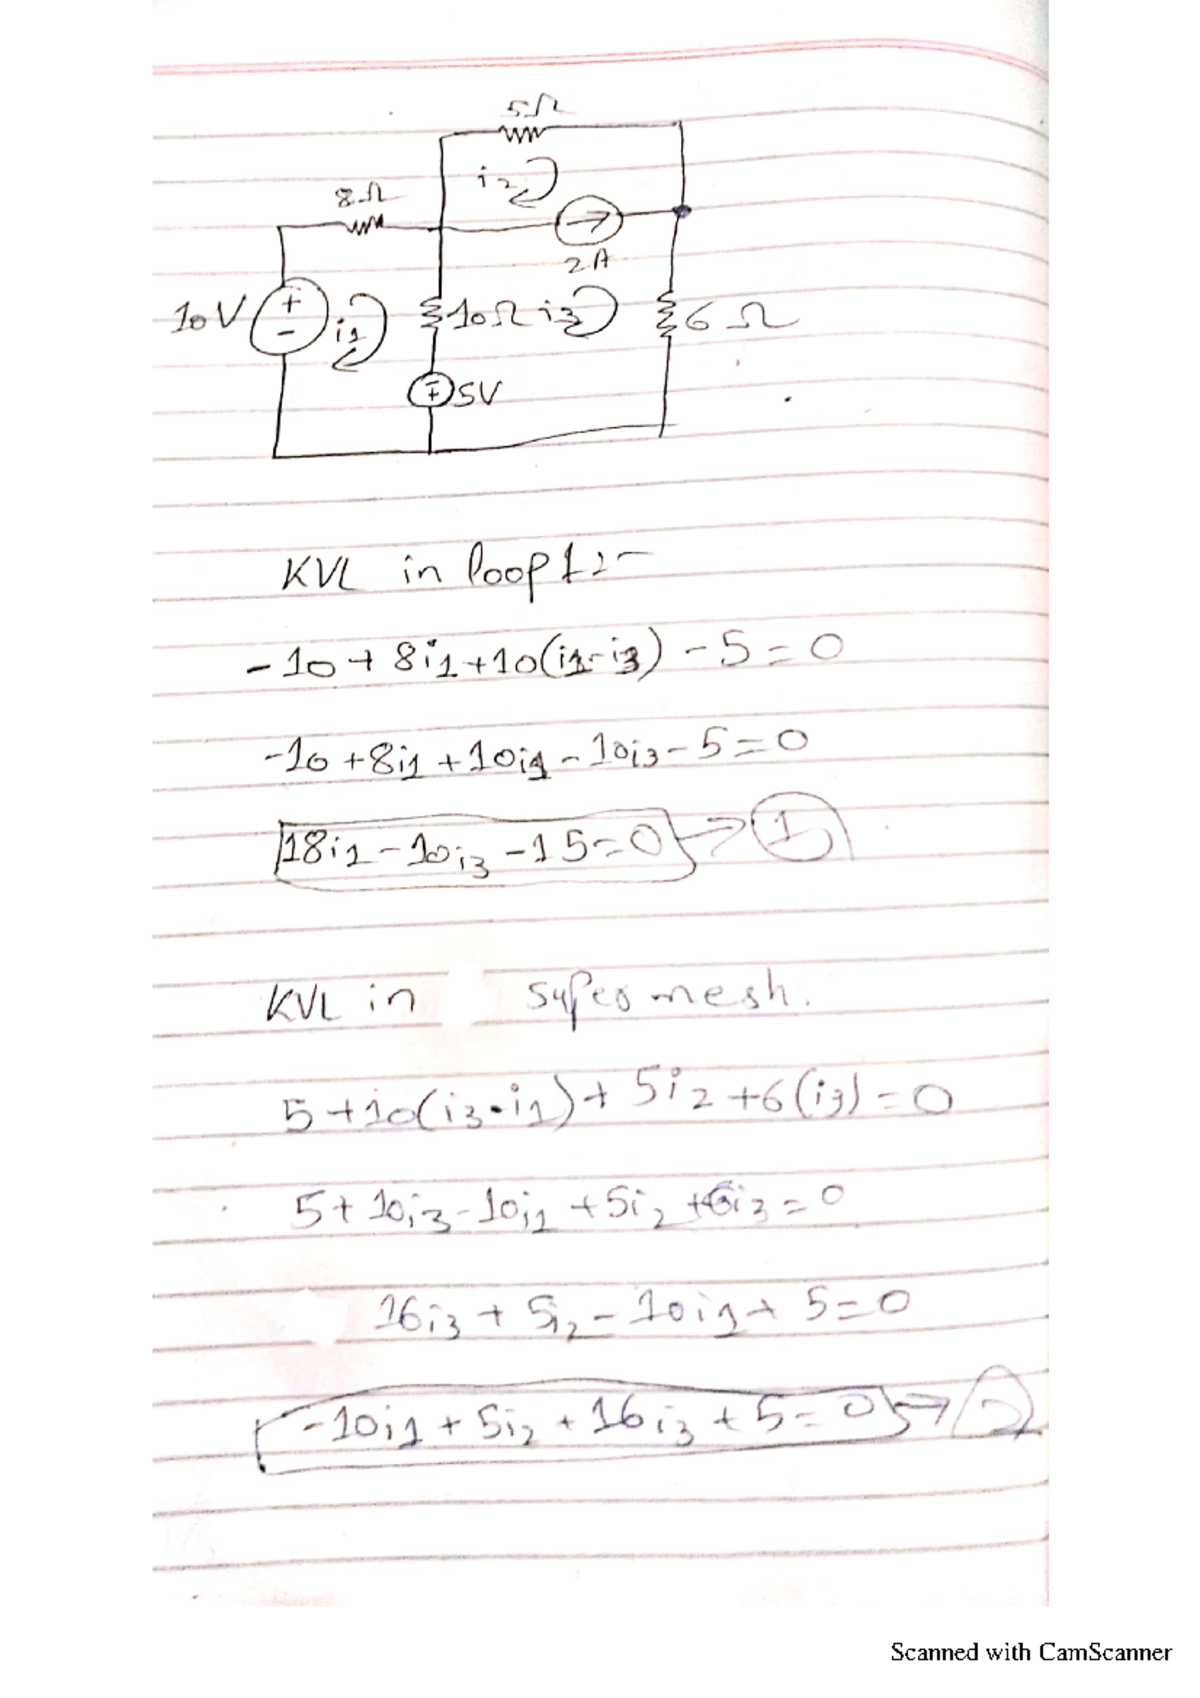 5Ω
i2
8Ω
2A
10V
+
-
i1
10Ω
i3
6Ω
5V
KVL in loop 1:-
-10 + 8i1 + 10(i1-i3) - 5 = 0
-10 + 8i1 + 10i1 - 10i3 - 5 = 0
18i1 - 10i3 - 15 = 0 → 1
KVL in super mesh.
5 + 10(i3-i1) + 5i2 + 6(i3) = 0
5 + 10i3 - 10i1 + 5i2 + 6i3 = 0
16i3 + 5i2 - 10i1 + 5 = 0
-10i1 + 5i2 + 16i3 + 5 = 0 → 2
Scanned with CamScanner